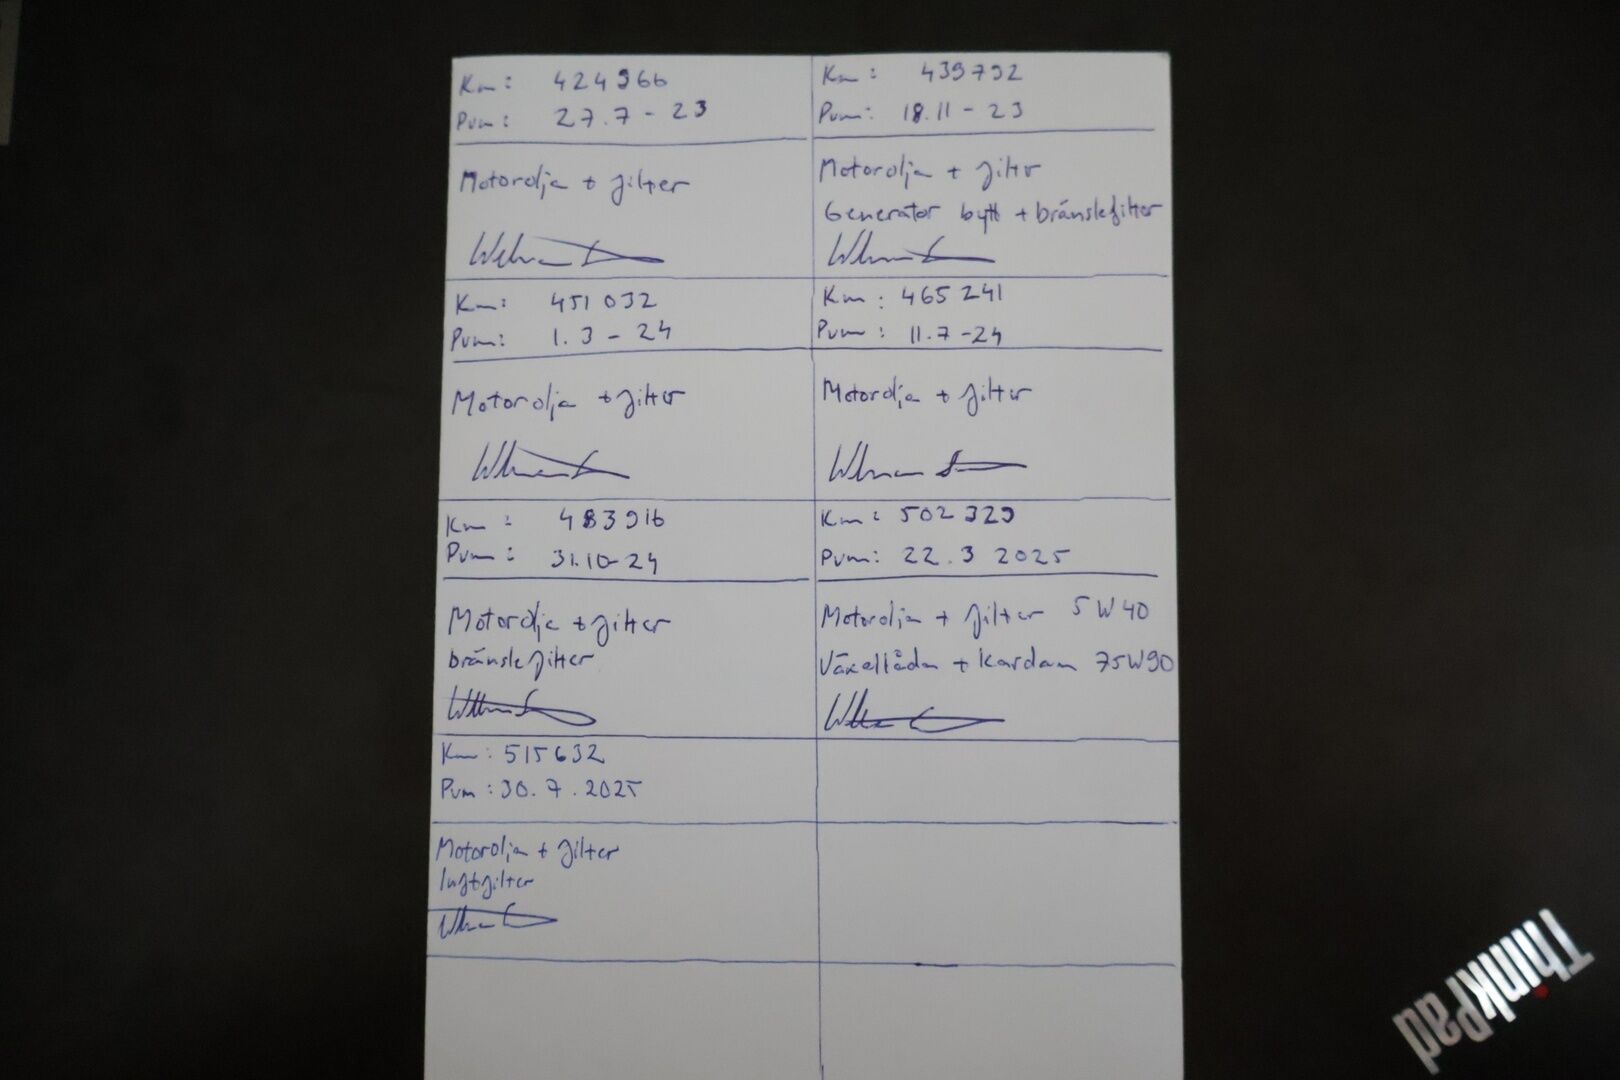 Km: 424966
Pvm: 27.7-23
Motorolja + filter
Km: 439792
Pvm: 18.11-23
Motorolja + filter
Generator bytt + bränslefilter
Km: 451 032
Pvm: 1.3-24
Motorolja + filter
Km: 465 241
Pvm: 11.7-24
Motorolja + filter
Km: 483916
Pvm: 31.10-24
Motorolja + filter
bränslefilter
Km: 502 329
Pvm: 22.3 2025
Motorolja + filter 5W40
Växellåda + Kardan 75W90
Km: 515632
Pvm: 30.7.2025
Motorolja + filter
luftfilter
ThinkPad